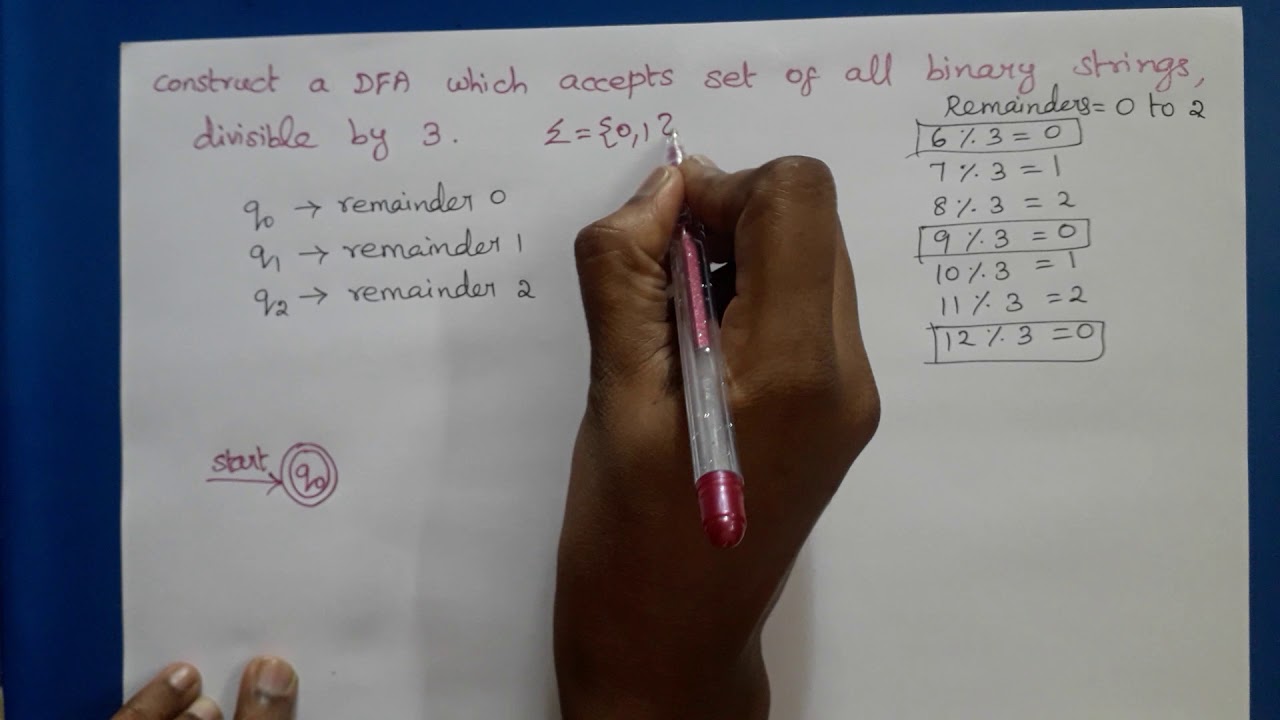 construct a DFA which accepts set of all binary strings,
divisible by 3. Σ = {0,1}
Remainders = 0 to 2
6 % 3 = 0
7 % 3 = 1
8 % 3 = 2
9 % 3 = 0
10 % 3 = 1
11 % 3 = 2
12 % 3 = 0
q0 → remainder 0
q1 → remainder 1
q2 → remainder 2
start q0